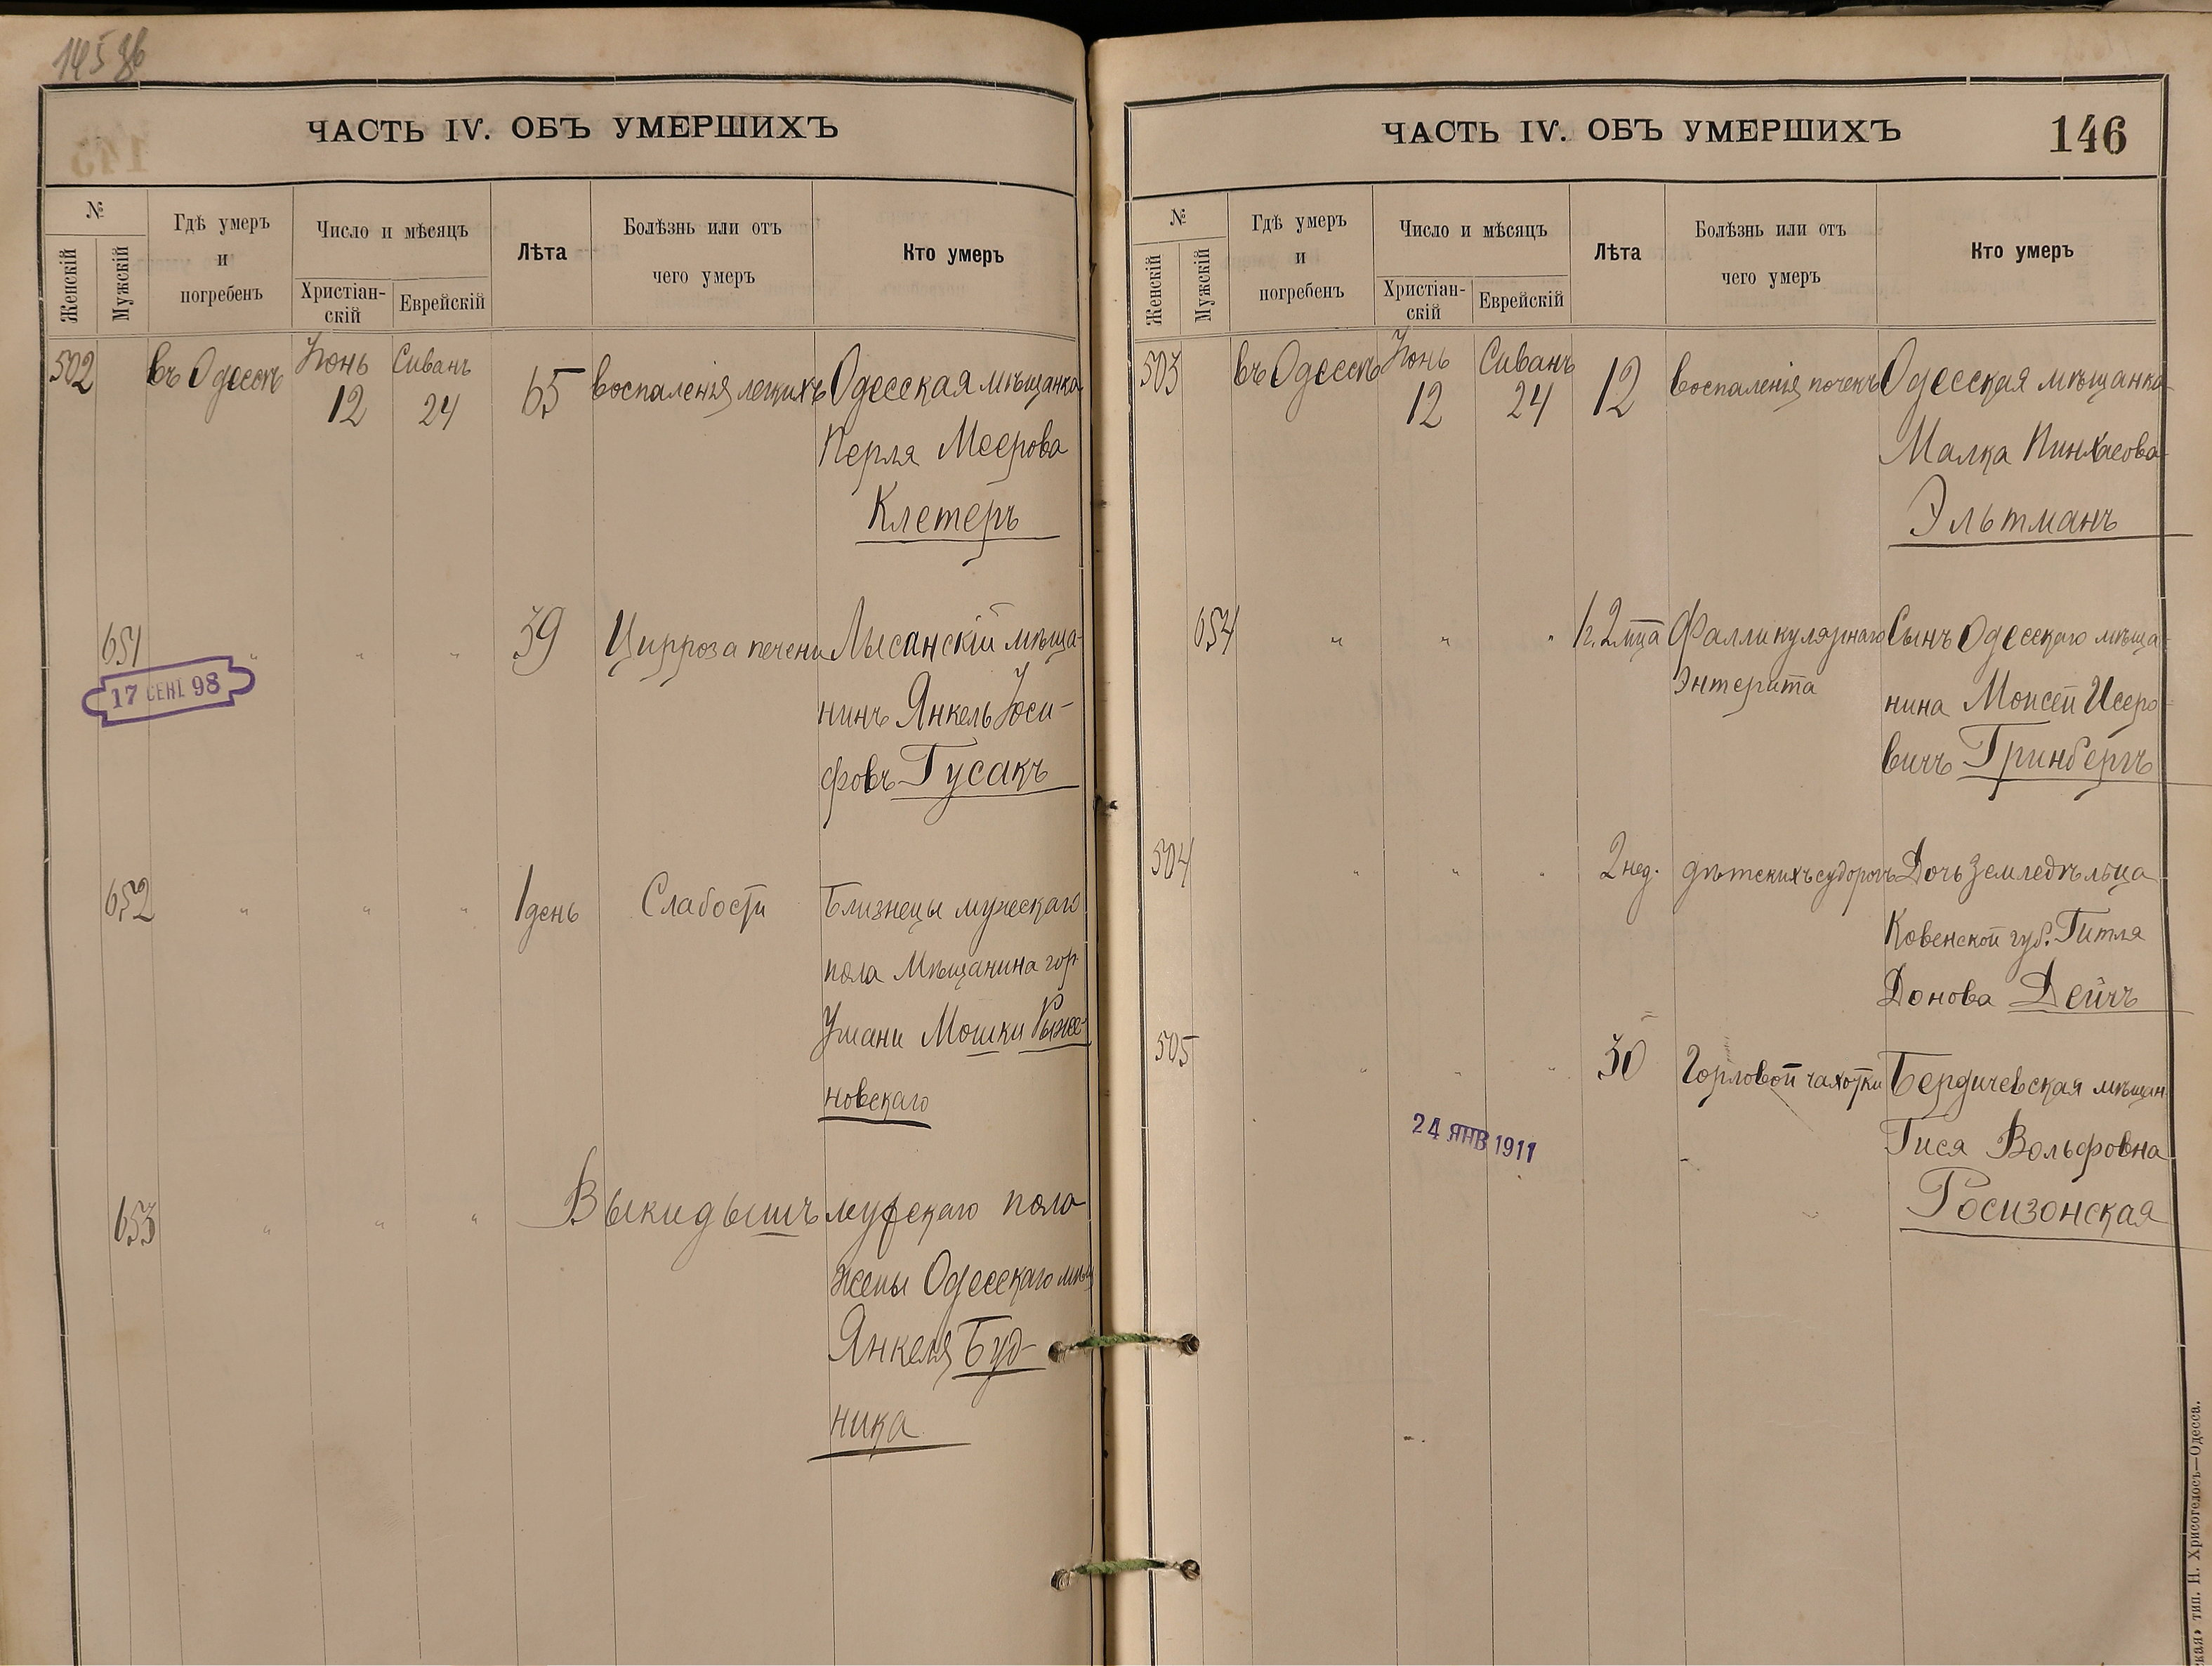 145 об
ЧАСТЬ IV. ОБЪ УМЕРШИХЪ
№
Женскій
Мужскій
Гдѣ умеръ
и
погребенъ
Число и мѣсяцъ
Христіан-
скій
Еврейскій
Лѣта
Болѣзнь или отъ
чего умеръ
Кто умеръ
502 въ Одессѣ Іюнь 12 Сиванъ 24 65 воспаленія легкихъ Одесская мѣщанка
Перля Меерова
Клетеръ
651 " " " 39 Цирроза печени Лысанскій мѣща-
17 СЕНТ 98
нинъ Янкель Іоси-
фовъ Гусакъ
652 " " " 1 день Слабости Близнецы мужескаго
пола Мѣщанина гор.
Умани Мошки Рыже-
новскаго
653 " " " Выкидышъ мужскаго пола
жены Одесскаго мѣщ
Янкеля Буд-
ника
ЧАСТЬ IV. ОБЪ УМЕРШИХЪ
146
№
Женскій
Мужскій
Гдѣ умеръ
и
погребенъ
Число и мѣсяцъ
Христіан-
скій
Еврейскій
Лѣта
Болѣзнь или отъ
чего умеръ
Кто умеръ
503 въ Одессѣ Іюнь 12 Сиванъ 24 12 воспаленія почекъ Одесская мѣщанка
Малка Пинхасова
Эльтманъ
654 " " " 1г. 2 мца Фалликулярнаго Сынъ Одесскаго мѣща-
Энтерита
нина Моисей Исеро-
вичъ Гринбергъ
504 " " " 2 нед. дѣтскихъ судорогъ Дочь земледѣльца
Ковенской губ. Гитля
Донова Дейчъ
505 " " " 30 Горловой чахотки Бердичевская мѣщан
24 ЯНВ 1911
Гися Вольфовна
Росизонская
ская» тип. Н. Хрисогелосъ—Одесса.